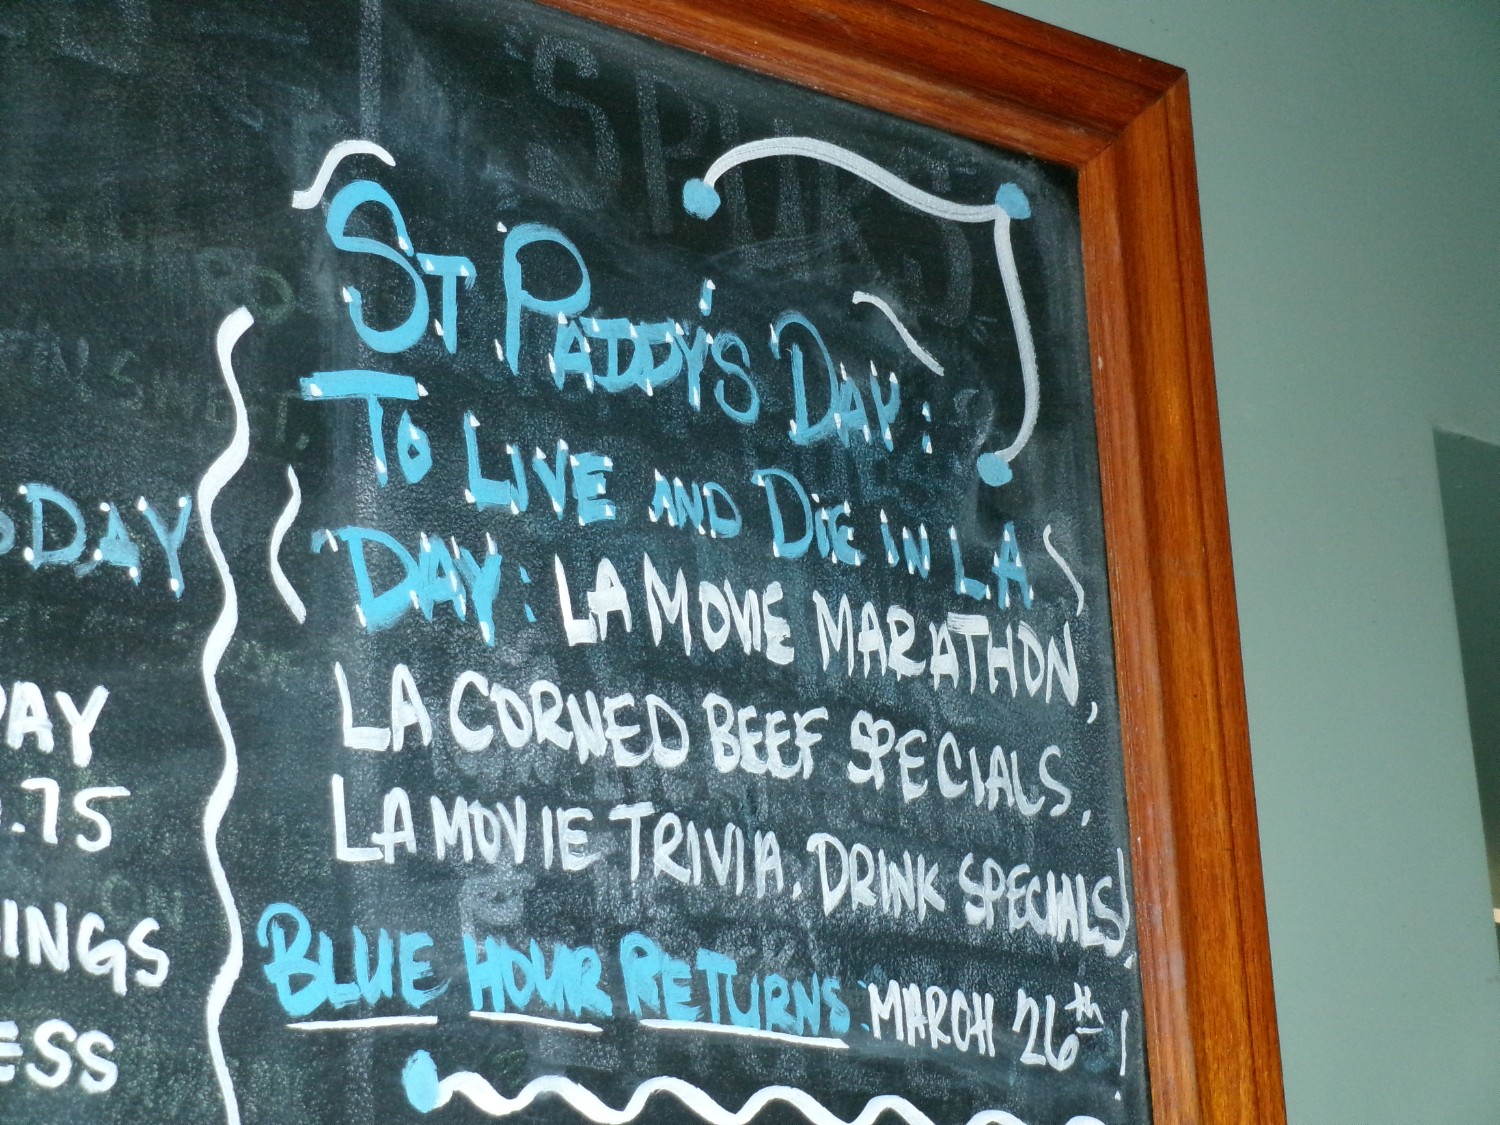 ST PADDY'S DAY:
TO LIVE AND DIE IN LA
DAY: LA MOVIE MARATHON,
LA CORNED BEEF SPECIALS,
LA MOVIE TRIVIA, DRINK SPECIALS!
BLUE HOUR RETURNS: MARCH 26th!
DAY
PAY
.75
INGS
ESS
SPURS